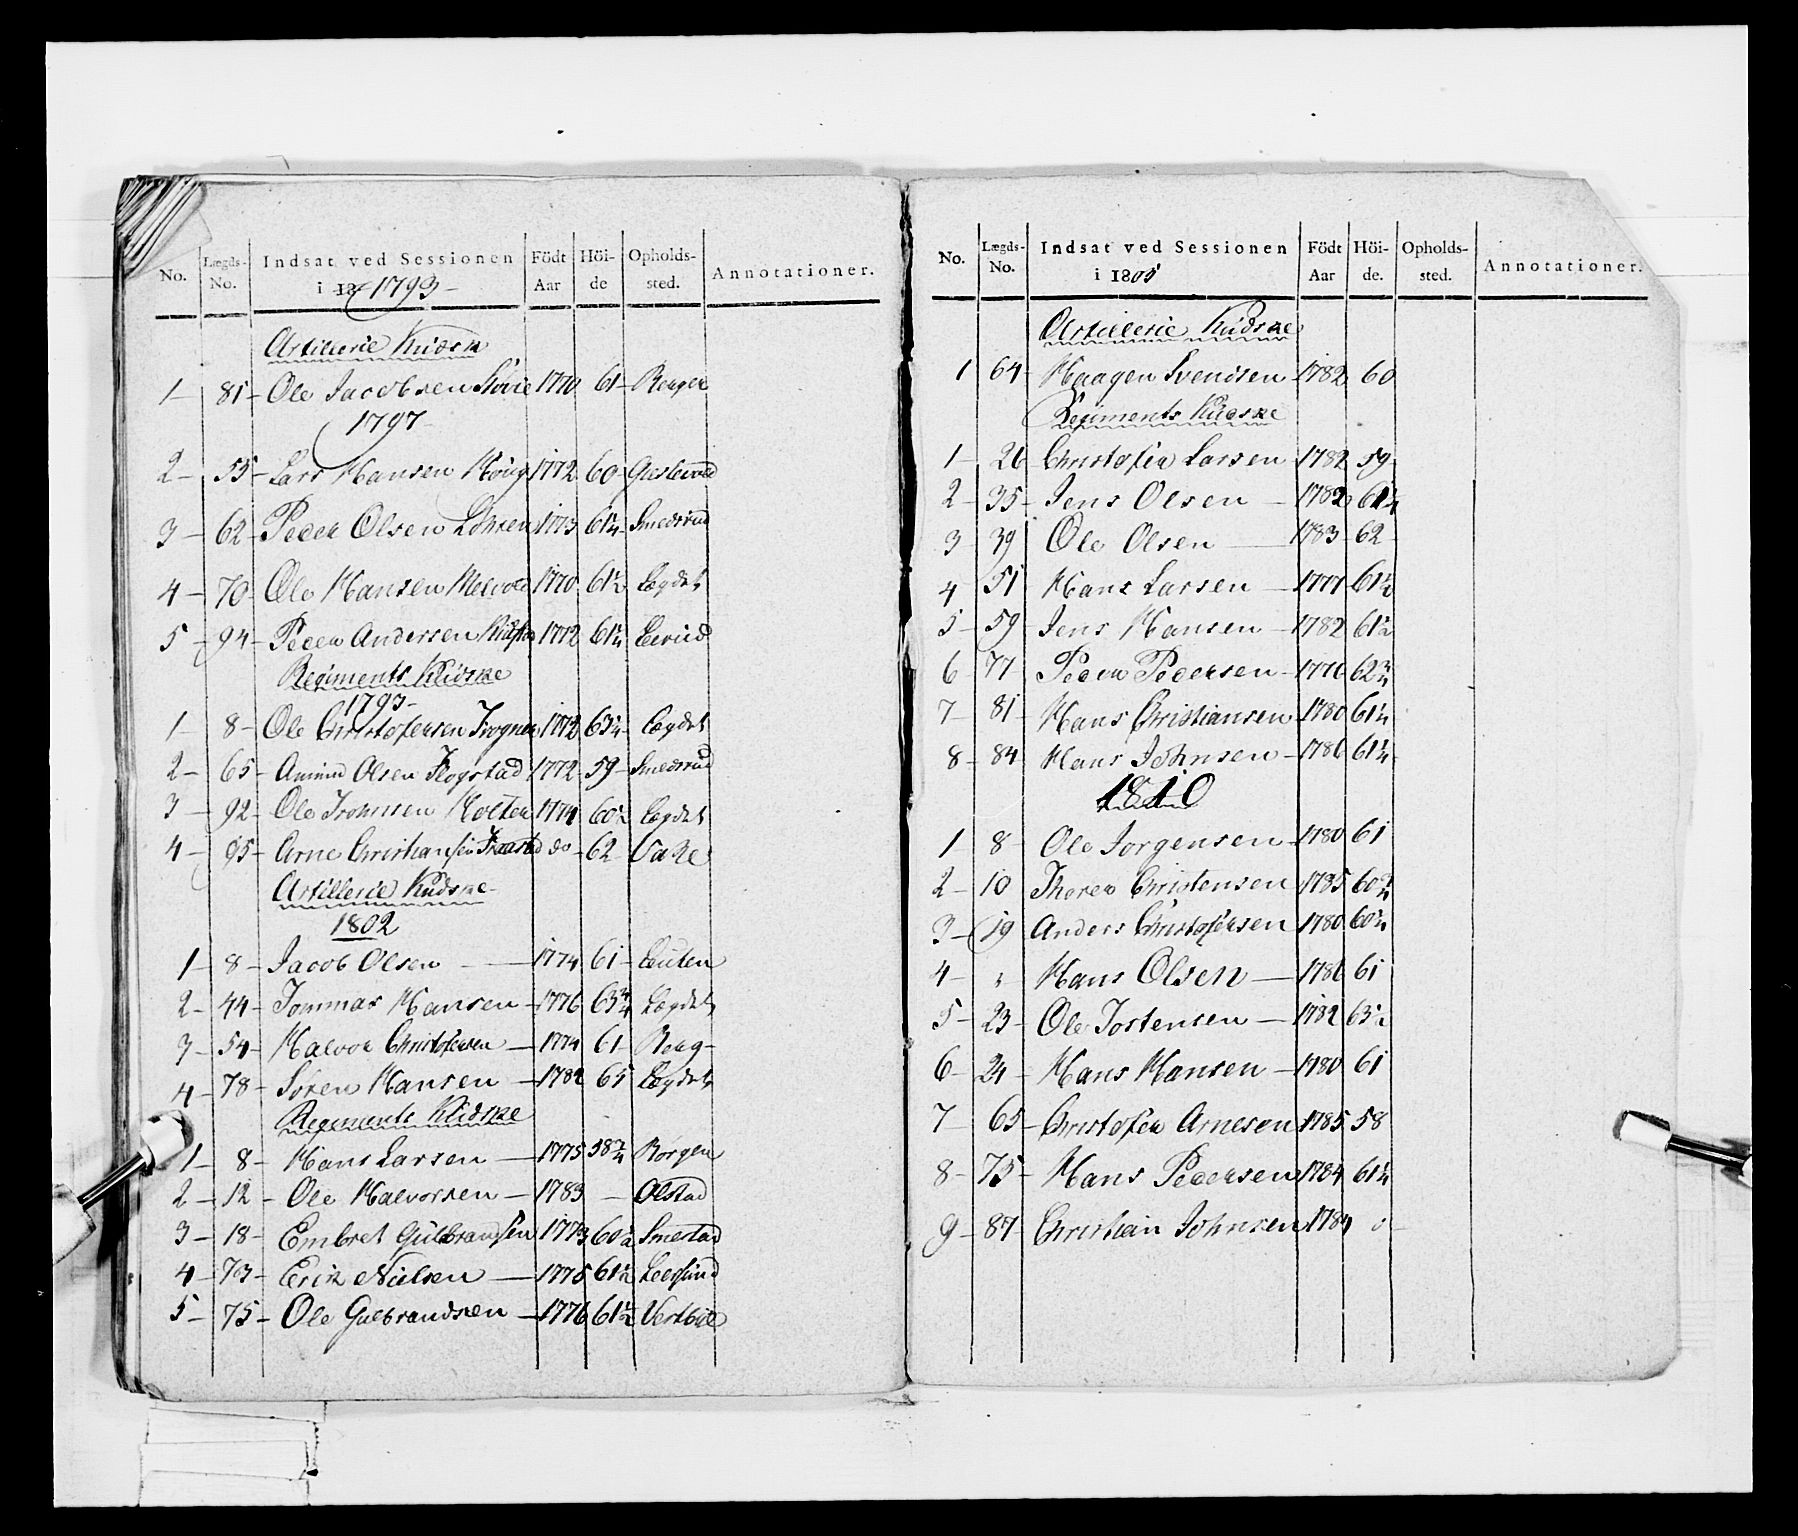 No. Lægds-No. Indsat ved Sessionen i 18 1793 Födt Aar Höide Opholdssted. Annotationer.
Artillerie Kudsk
1 81 Ole Jacobsen 1770 61
1797
2 55 Lars Hansen 1772 60
3 62 Peder Olsen 1773 61¼ Smedsrud
4 70 Ole Hansen 1770 61½ Lægdet
5 94 Peder Andersen 1772 61¼
Regiments Kudske
1793
1 8 Ole Christofersen Frogner 1772 63¼ Lægdet
2 65 Amund Olsen Flogstad 1772 59 Smedsrud
3 92 Ole 1774 60½ Lægdet
4 95 Arne Christiansen do 62
Artillerie Kudske
1802
1 8 Jacob Olsen 1774 61
2 44 Tommas Hansen 1776 63¾ Lægdet
3 54 Halvor Christofersen 1774 61
4 78 Sören Hansen 1782 65 Lægdet
Regiments Kudske
1 8 Hans Larsen 1775 58¾ Börgen
2 12 Ole Halvorsen 1783 — Olstad
3 18 Embret Gulbrandsen 1773 60½ Smestad
4 73 Erik Nielsen 1775 61½
5 75 Ole Gulbrandsen 1776 61½
No. Lægds-No. Indsat ved Sessionen i 1805 Födt Aar Höide. Opholdssted. Annotationer.
Artillerie Kudske
1 64 Haagen Svendsen 1782 60
Regiments Kudske
1 26 Christofer Larsen 1782 59
2 35 Jens Olsen 1782 61¼
3 39 Ole Olsen 1783 62
4 51 Hans Larsen 1777 61½
5 59 Jens Hansen 1782 61½
6 77 Peder Pedersen 1776 62¾
7 81 Hans Christiansen 1780 61¼
8 84 Hans Johnsen 1786 61¼
1810
1 8 Ole Jorgensen 1780 61
2 10 Thorer Christensen 1785 60¾
3 19 Anders Christofersen 1780 60¾
4 " Hans Olsen 1786 61
5 23 Ole Tostensen 1782 63½
6 24 Hans Hansen 1780 61
7 65 Christofer Arnesen 1785 58
8 75 Hans Pedersen 1784 61¼
9 87 Christian Johnsen 1784